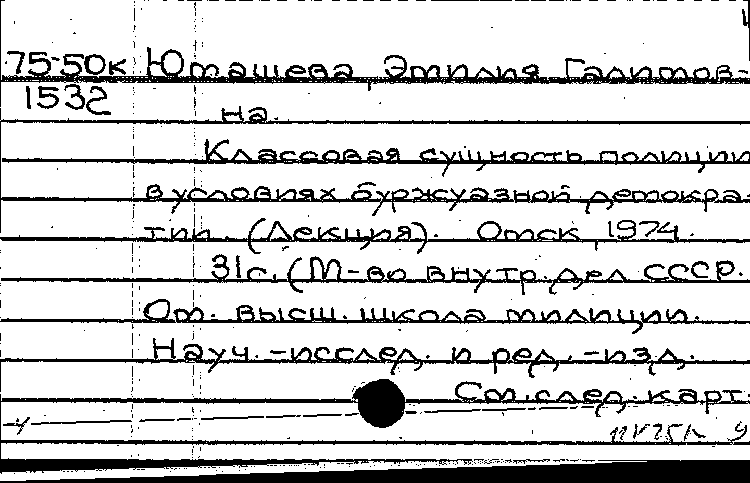 75-50к Юташева, Эмилия Галимов-
1532 на.
Классовая сущность полиции
в условиях буржуазной демокра-
тии. (Лекция). Омск, 1974.
31с. (М-во внутр. дел СССР.
Ом. высш. школа милиции.
Науч.-исслед. и ред.-изд.
См. след. карт.